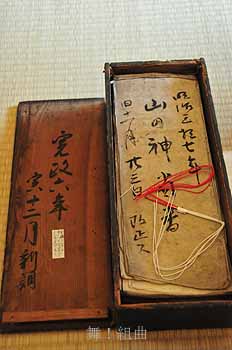 明治三拾七年
山の神
旧十一月廿三日改正ス
寛政六年
寅ノ十二月新調
舞！組曲